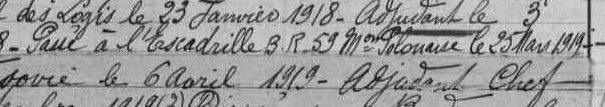 des Logis le 23 Janvier 1918 - Adjudant le 3
8 - Passé à l'Escadrille B.R. 59 Mon Polonaise le 25 Mars 1919 -
govie le 6 Avril 1919 - Adjudant Chef